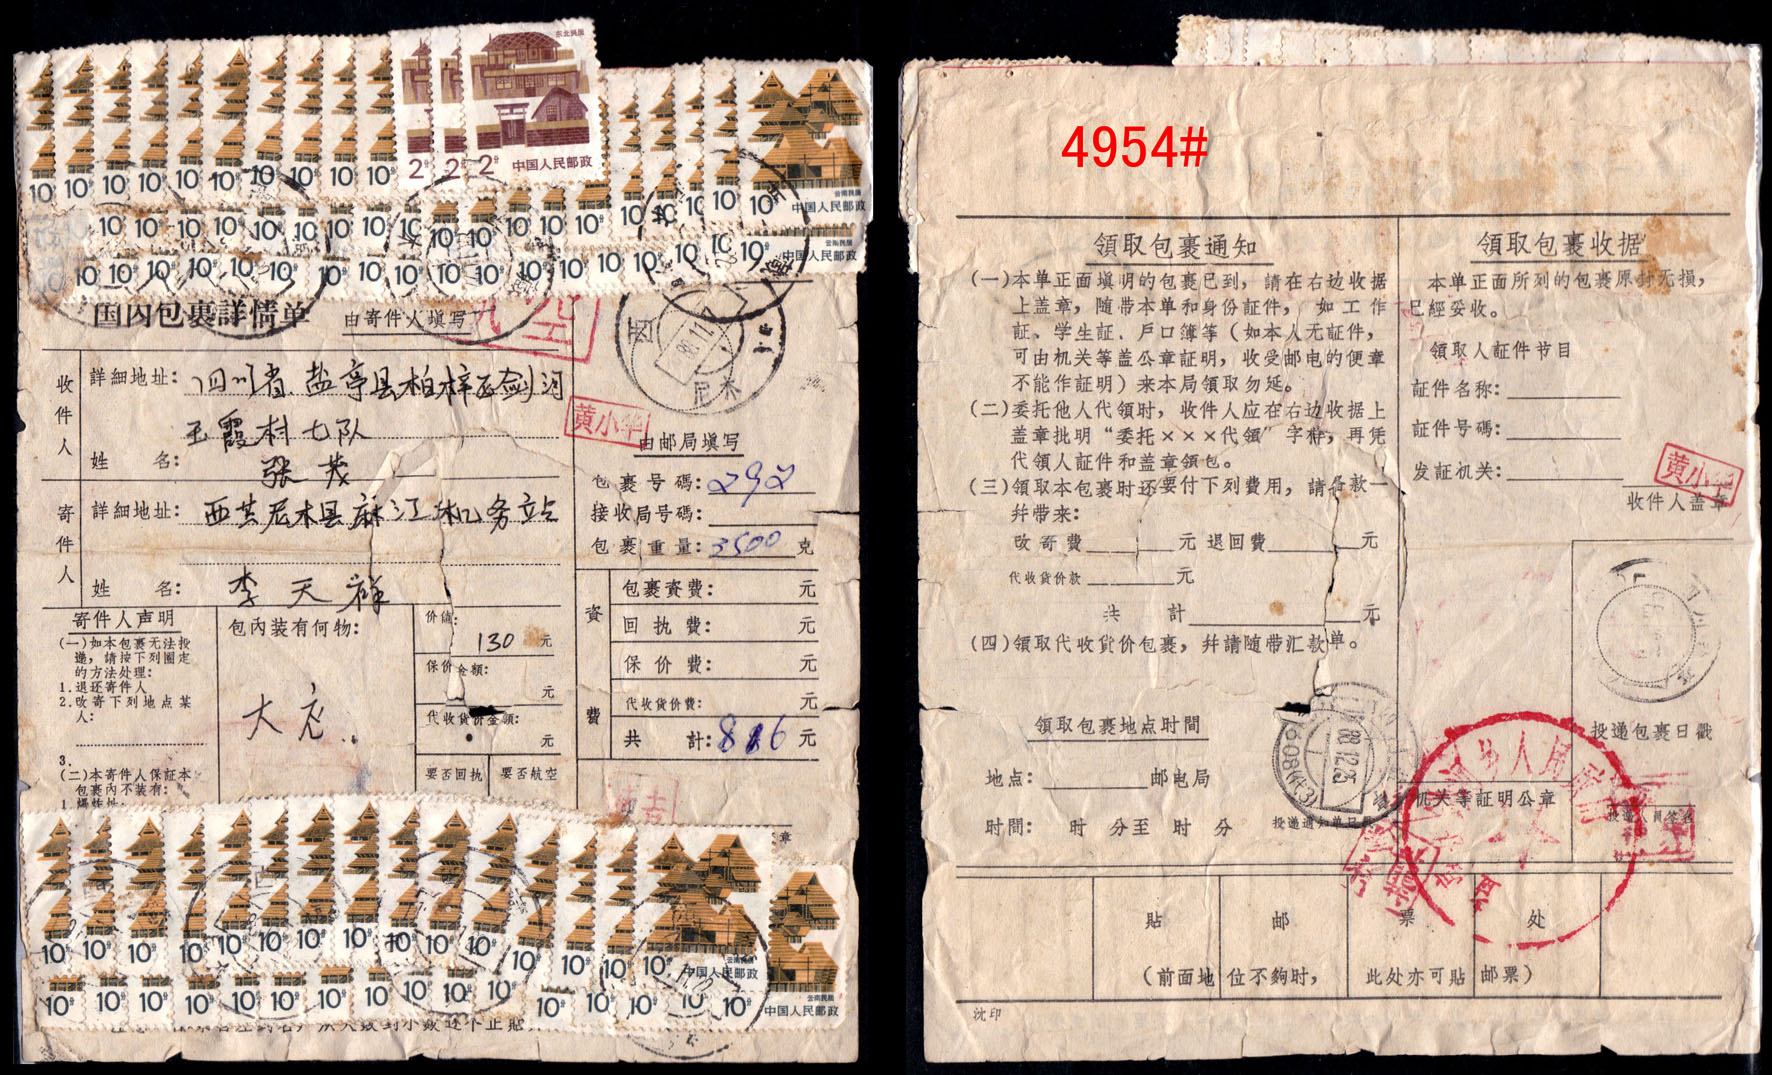 东北民居
2分 2分 2分
中国人民邮政
10分
云南民居
中国人民邮政
云南民居
国内包裹詳情单 由寄件人填写
收件人
詳細地址: 四川省盐亭县柏梓区剑河
玉霞村七队
姓 名: 張茂
寄件人
詳細地址: 西芷尼木县麻江机务站
姓 名: 李天祥
寄件人声明
(一)如本包裹无法投
递,請按下列圈定
的方法处理:
1.退还寄件人
2.改寄下列地点某
人:
3.
(二)本寄件人保証本
包裹內不装有:
包內装有何物:
大衣
价值: 130 元
保价金額: 元
代收貨价金額: 元
要否回执 要否航空
西 尼木
88.11.7
黄小华
由邮局填写
包裹号碼: 292
接收局号碼:
包裹重量: 3500 克
資費
包裹資費: 元
回执費: 元
保价費: 元
代收貨价費: 元
共 計: 816 元
云南民居
中国人民邮政
云南民居
中国人民邮政
4954#
領取包裹通知
(一)本单正面填明的包裹已到,請在右边收据
上盖章,随带本单和身份証件,如工作
証、学生証、戶口簿等(如本人无証件,
可由机关等盖公章証明,收受邮电的便章
不能作証明)来本局領取勿延。
(二)委托他人代領时,收件人应在右边收据上
盖章批明“委托×××代領”字样,再凭
代領人証件和盖章領包。
(三)領取本包裹时还要付下列費用,請备款一
幷带来:
改寄費 元 退回費 元
代收貨价款 元
共 計 元
(四)領取代收貨价包裹,幷請随带汇款单。
領取包裹地点时間
地点: 邮电局
时間: 时 分至 时 分
投递通知单日戳
88.12.25
領取包裹收据
本单正面所列的包裹原封无損,
已經妥收。
領取人証件节目
証件名称:
証件号碼:
发証机关:
黄小华
收件人盖章
投递包裹日戳
机关等証明公章
投递人員签名
貼 邮 票 处
(前面地位不夠时, 此处亦可貼邮票)
沈印